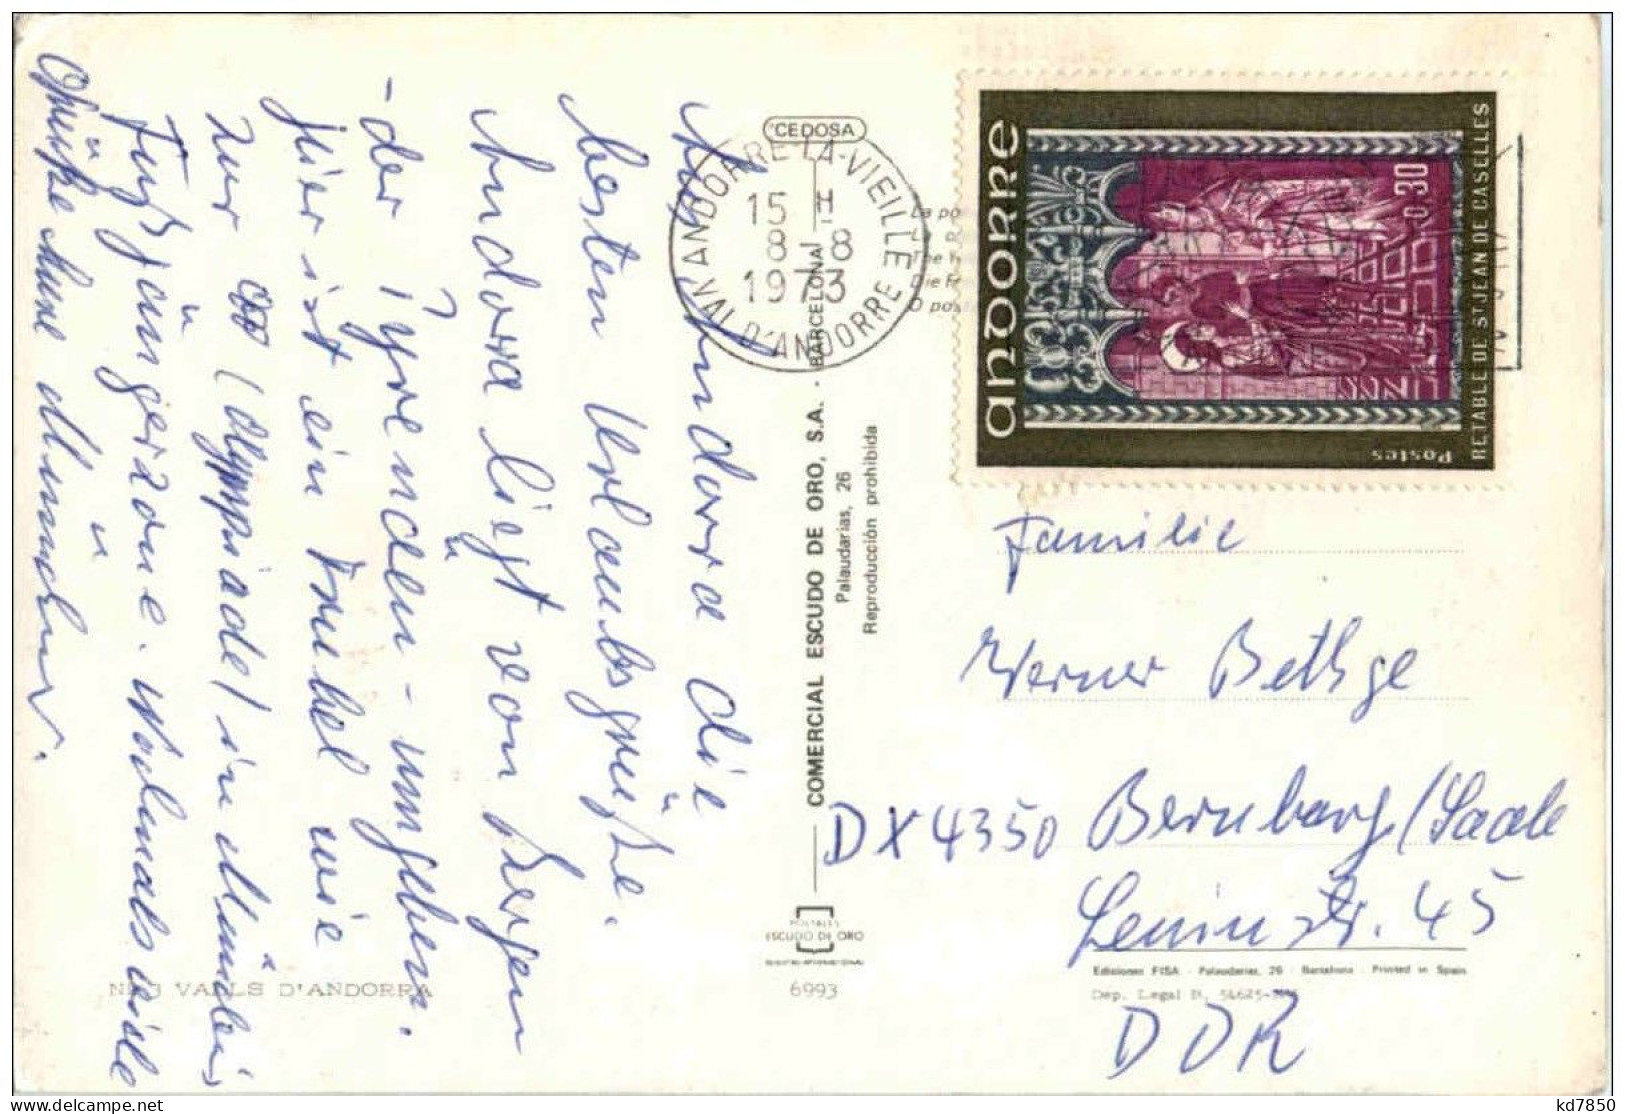 Aus Andorra die
besten Urlaubsgrüße.
Andora liegt von Bergen
- der Pyrenäen - umgeben.
Hier ist ein Trubel wie
zur (Olympiade) in München
Fußgängerzone. Nochmals viele
Grüße Eure
CEDOSA
COMERCIAL ESCUDO DE ORO, S.A. · BARCELONA
Palaudarias, 26
Reproducción prohibida
POSTALES
ESCUDO DE ORO
6993
VALLS D'ANDORRA
ANDORRE-LA-VIEILLE
15 H
8-8
1973
VAL D'ANDORRE
La po
The
Die
O pos
ANDORRE
0,30
Postes
RETABLE DE St JEAN DE CASELLES
Familie
Werner Bethge
DX 4350 Bernburg/Saale
Leninstr. 45
DDR
Ediciones FISA - Palaudarias, 26 - Barcelona - Printed in Spain
Dep. Legal B. 54625-
kd7850